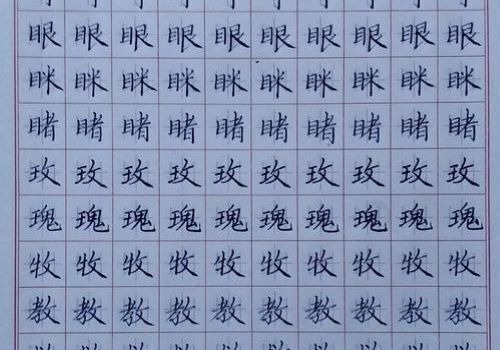 眼眼眼眼眼眼眼眼眼眼
眯眯眯眯眯眯眯眯眯眯
睹睹睹睹睹睹睹睹睹睹
玫玫玫玫玫玫玫玫玫玫
瑰瑰瑰瑰瑰瑰瑰瑰瑰瑰
牧牧牧牧牧牧牧牧牧牧
教教教教教教教教教教